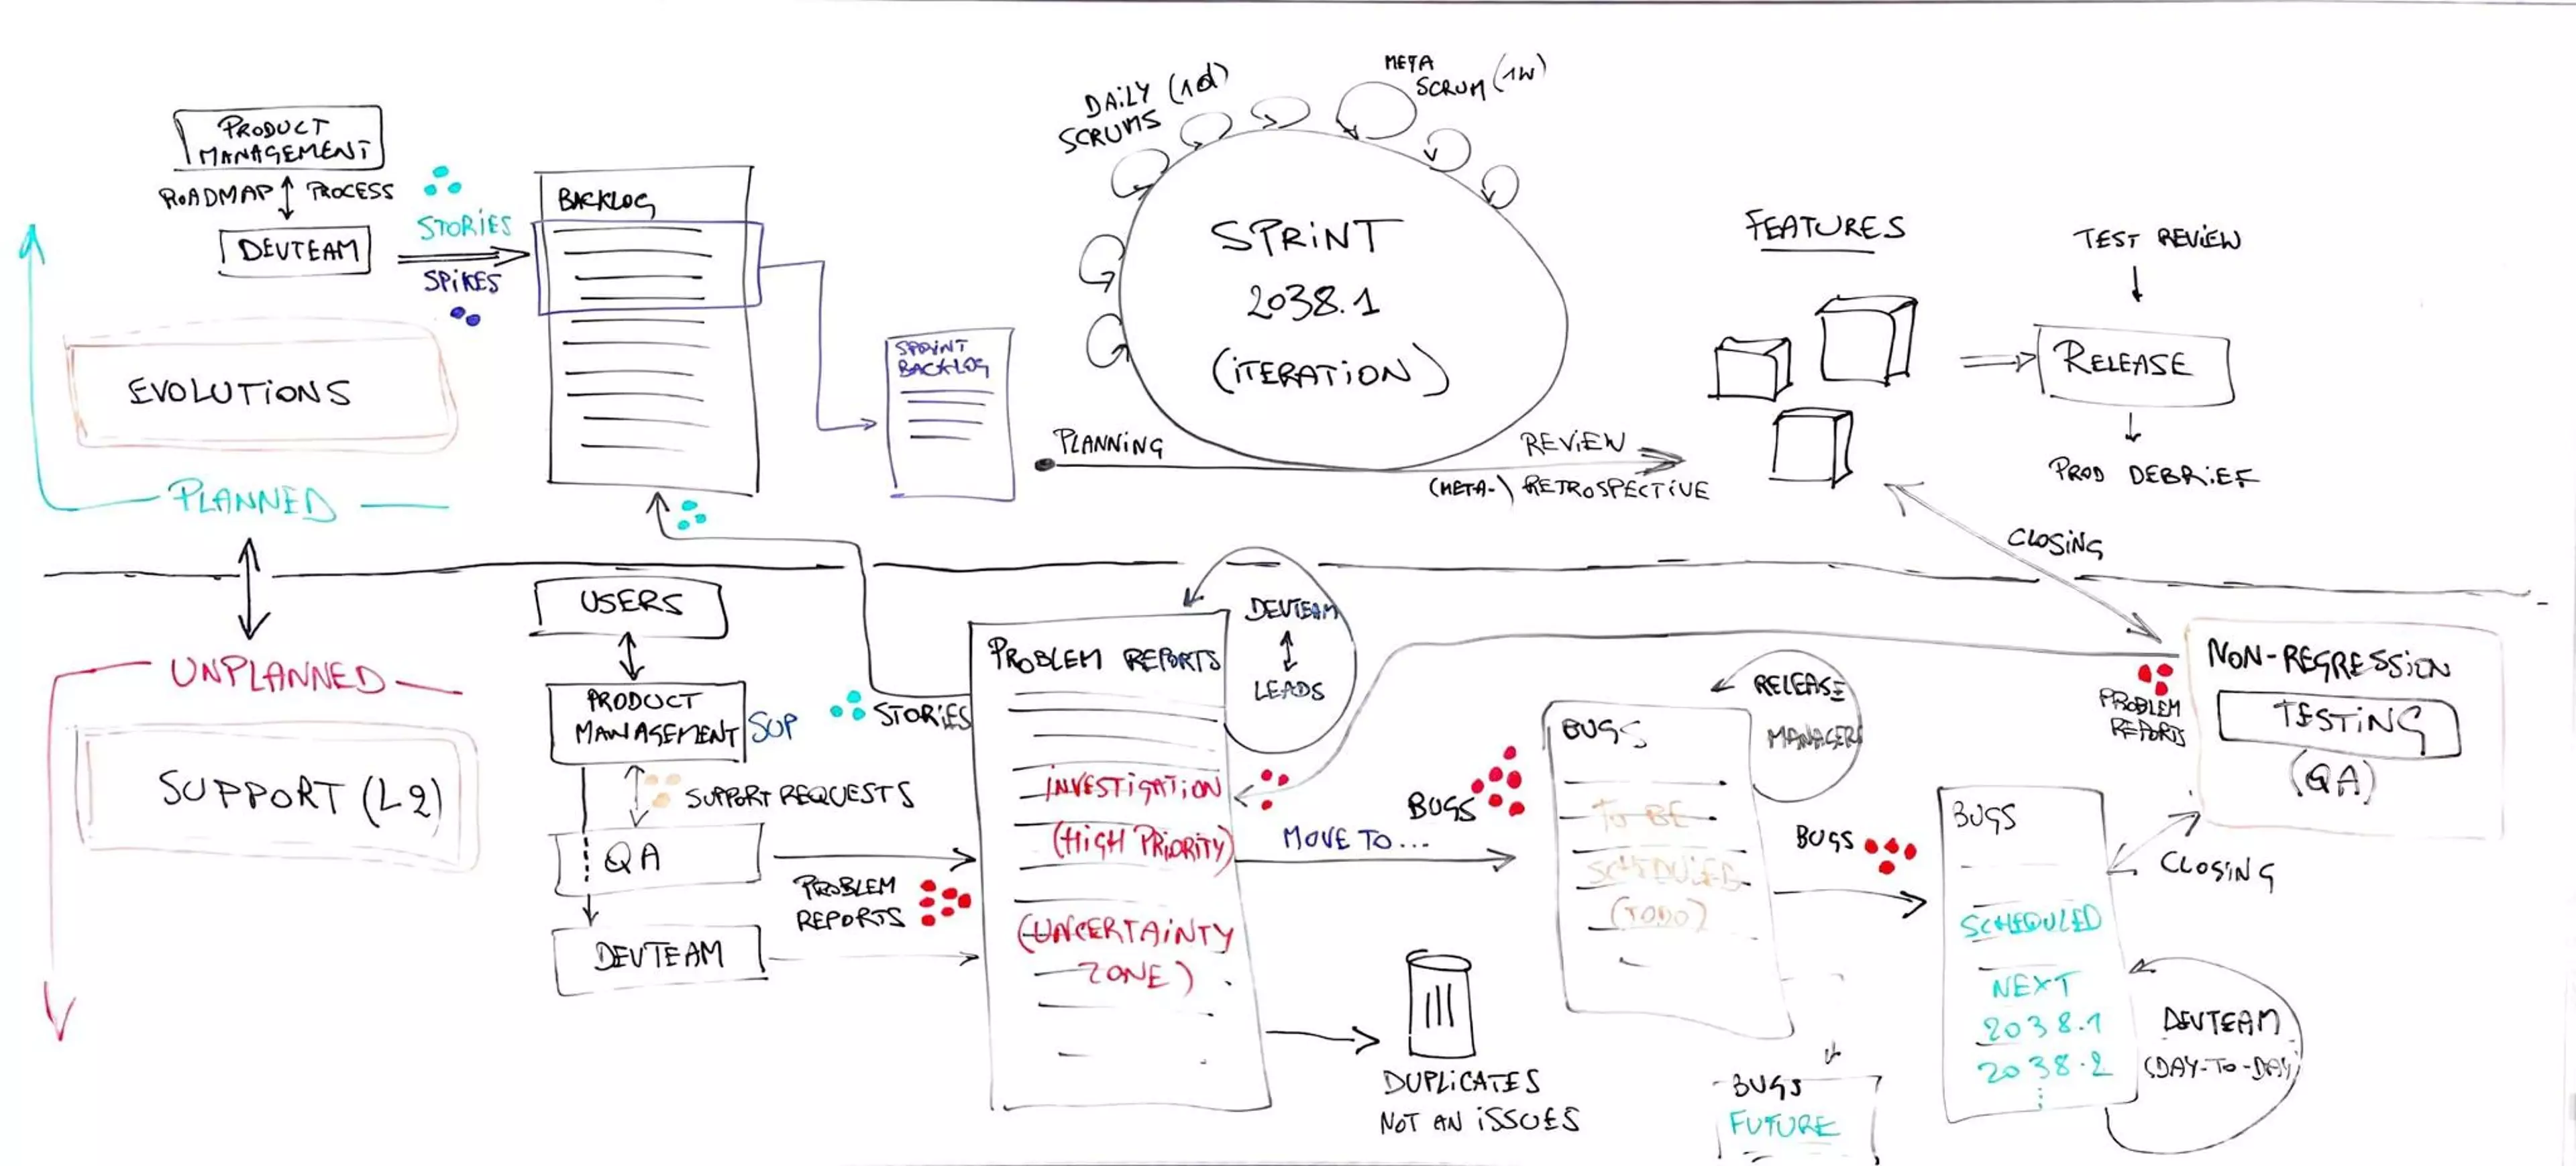 PRODUCT
MANAGEMENT
ROADMAP PROCESS
DEVTEAM
STORIES
SPIKES
EVOLUTIONS
PLANNED
BACKLOG
SPRINT
BACKLOG
DAILY (1d)
SCRUMS
META
SCRUM (1W)
SPRINT
2038.1
(ITERATION)
PLANNING
REVIEW
(META-) RETROSPECTIVE
FEATURES
TEST REVIEW
RELEASE
PROD DEBRIEF
CLOSING
UNPLANNED
SUPPORT (L2)
USERS
PRODUCT
MANAGEMENT
SUP
SUPPORT REQUESTS
QA
DEVTEAM
PROBLEM
REPORTS
STORIES
PROBLEM REPORTS
INVESTIGATION
(HIGH PRIORITY)
(UNCERTAINTY
ZONE)
DEVTEAM
LEADS
BUGS
MOVE TO...
DUPLICATES
NOT AN ISSUES
BUGS
TO BE
SCHEDULED
(TODO)
RELEASE
MANAGERS
BUGS
FUTURE
BUGS
BUGS
SCHEDULED
NEXT
2038.1
2038.2
DEVTEAM
(DAY-TO-DAY)
CLOSING
PROBLEM
REPORTS
NON-REGRESSION
TESTING
(QA)